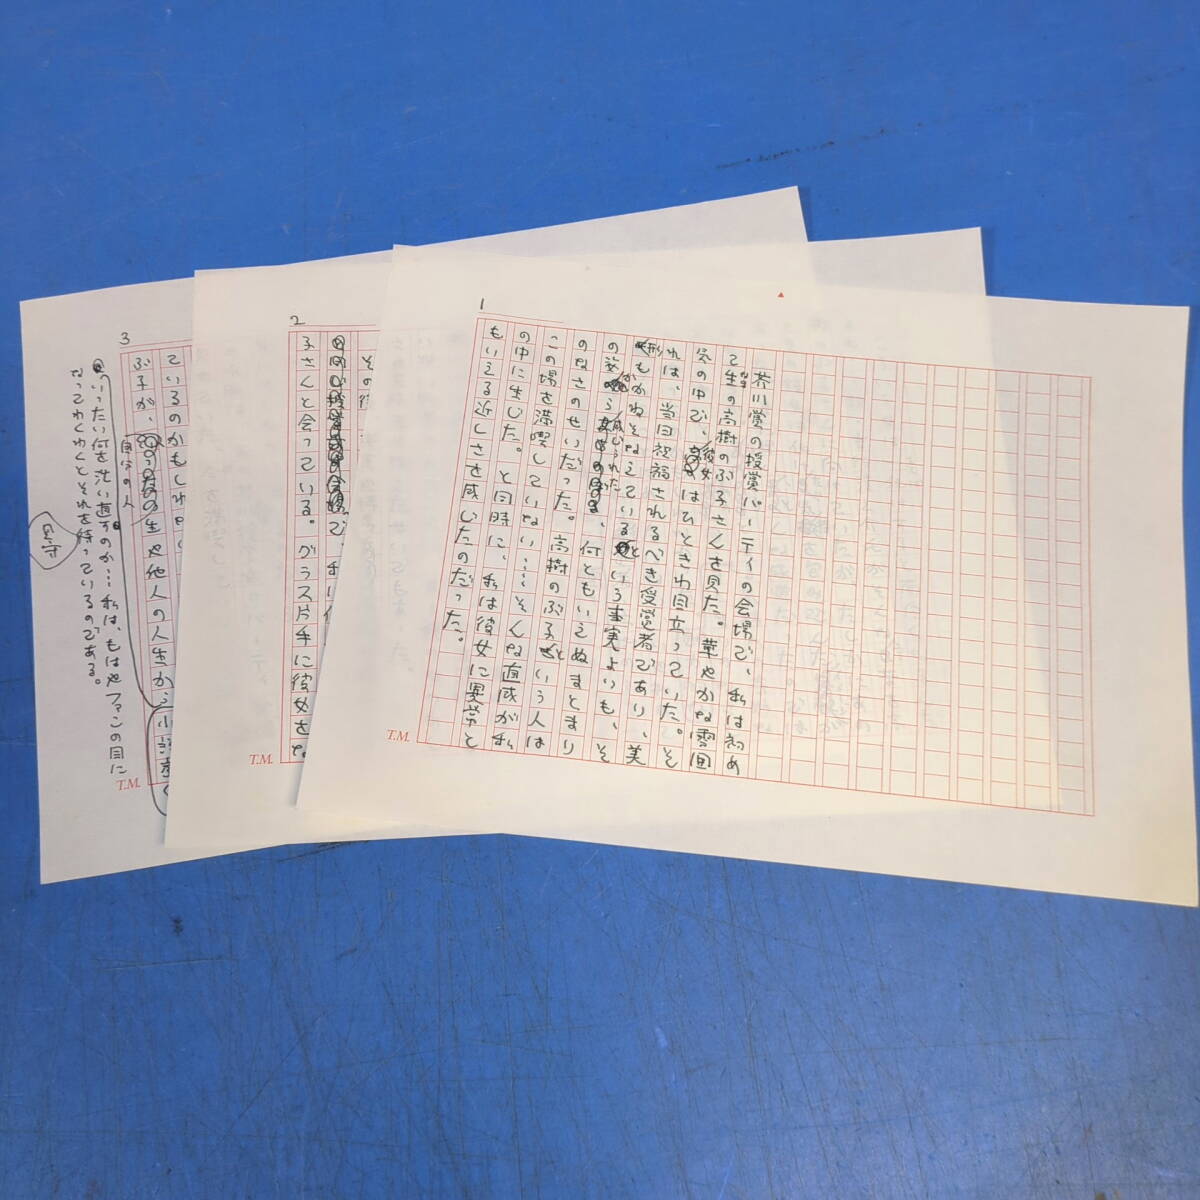 1
芥川賞の授賞パーティの会場で、私は初め
て生の高樹のぶ子さんを見た。華やかな雰囲
気の中で、彼女はひときわ目立っていた。そ
れは、当日祝福されるべき受賞者であり、美
形もかねそなえているという事実よりも、そ
の姿から感じられた、何ともいえぬまとまり
のなさのせいだった。高樹のぶ子という人は
この場を満喫していない……そんな直感が私
の中に生じた。と同時に、私は彼女に異常と
もいえる近しさを感じたのだった。
T.M.
2
その後
子さんと会っている。グラス片手に彼女をな
T.M.
3
ているのかもしれ
ぶ子が、自分の人生や他人の人生から
いったい何を洗い直すのか…私は、もはやファンの目に
なってわくわくとそれを待っているのである。
T.M.